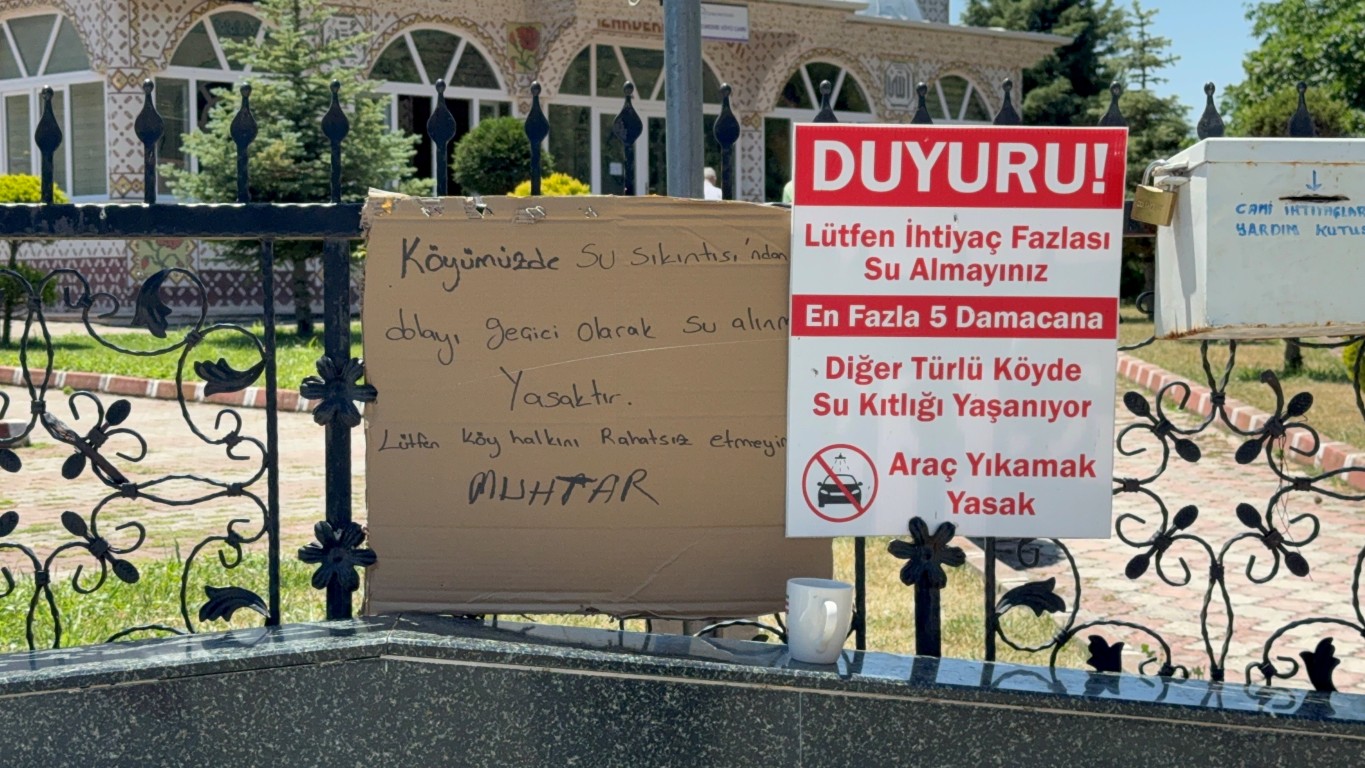 Köyümüzde su sıkıntısı'ndan
dolayı geçici olarak su
Yasaktır.
Lütfen köy halkını Rahatsız
MUHTAR
DUYURU!
Lütfen İhtiyaç Fazlası
Su Almayınız
En Fazla 5 Damacana
Diğer Türlü Köyde
Su Kıtlığı Yaşanıyor
Araç Yıkamak
Yasak
CAMİ
YARDIM